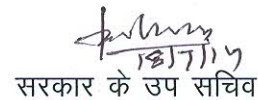 18/7/14
सरकार के उप सचिव